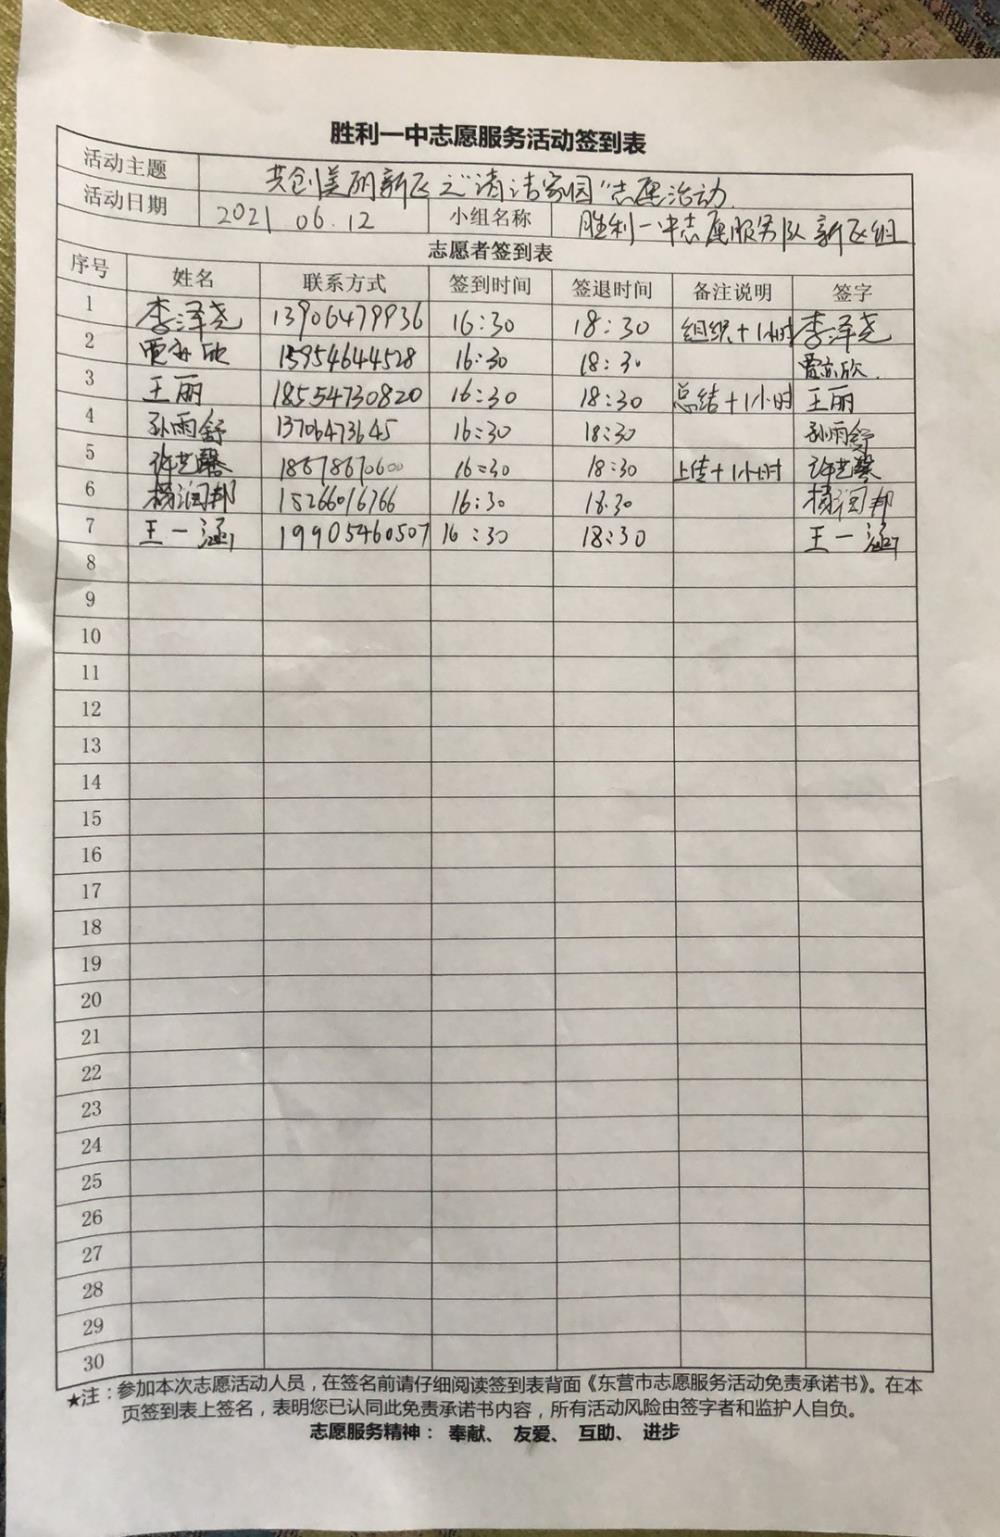 胜利一中志愿服务活动签到表
活动主题 共创美丽新区之“清洁家园”志愿活动
活动日期 2021 06.12 小组名称 胜利一中志愿服务队新区组
志愿者签到表
序号 姓名 联系方式 签到时间 签退时间 备注说明 签字
1 李泽尧 13906479936 16:30 18:30 组织+1小时 李泽尧
2 贾亦欣 15954644528 16:30 18:30 贾亦欣.
3 王丽 18554730820 16:30 18:30 总结+1小时 王丽
4 孙雨舒 13706473645 16:30 18:30 孙雨舒
5 许艺馨 18678670600 16:30 18:30 上传+1小时 许艺馨
6 杨润邦 15266016766 16:30 18:30 杨润邦
7 王一涵 19905460507 16:30 18:30 王一涵
8
9
10
11
12
13
14
15
16
17
18
19
20
21
22
23
24
25
26
27
28
29
30
★注：参加本次志愿活动人员，在签名前请仔细阅读签到表背面《东营市志愿服务活动免责承诺书》。在本
页签到表上签名，表明您已认同此免责承诺书内容，所有活动风险由签字者和监护人自负。
志愿服务精神： 奉献、 友爱、 互助、 进步